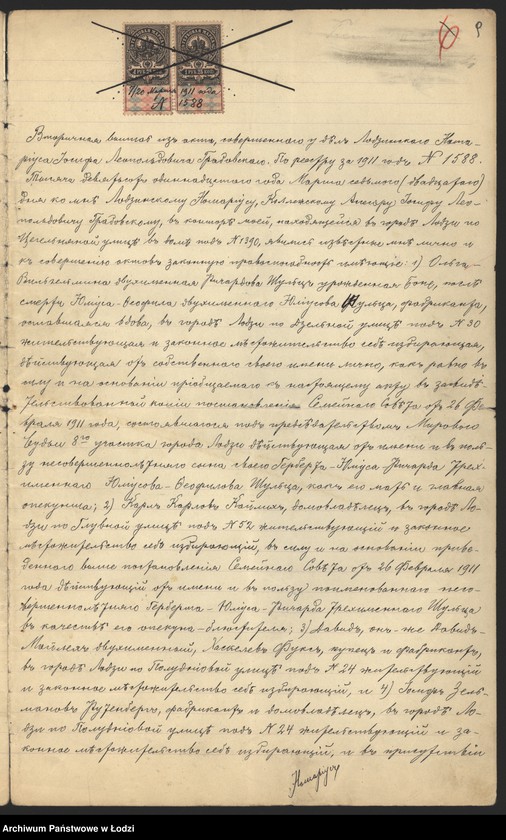 7/20 Марта 1911 года
№ 1588
9
Вторичная выпись изъ акта, совершеннаго у дѣлъ Лодзинскаго Нота-
ріуса Іосифа Леопольдовича Грабовскаго. По реестру за 1911 годъ № 1588.
Тысяча девятьсотъ одиннадцатаго года Марта седьмого (двадцатаго)
дня ко мнѣ Лодзинскому Нотаріусу, Іосифу Лео-
польдовичу Грабовскому, въ контору мою, находящейся въ городѣ Лодзи по
Цегельняной улицѣ въ домѣ подъ № 1390, явились извѣстные мнѣ лично и
къ совершенію актовъ законную правоспособность имѣющіе: 1) Ольга-
Вильгельмина двухименная Рихардова Шульцъ урожденная Боче, послѣ
смерти Юліуса-Теофила двухименнаго Юліусова Шульца, фабриканта,
оставшаяся вдова, въ городѣ Лодзи по Дзельной улицѣ подъ № 30
жительствующая и законное мѣстожительство себѣ избирающая,
дѣйствующая отъ собственнаго своего имени лично, какъ равно въ
силу и на основаніи пріобщаемаго къ настоящему акту въ засвидѣ-
тельствованной копіи постановленія Семейнаго Совѣта отъ 26 Фе-
враля 1911 года, состоявшагося подъ предсѣдательствомъ Мирового
Судьи 8го участка города Лодзи дѣйствующая отъ имени и въ поль-
зу несовершеннолѣтняго сына своего Герберта-Юліуса-Рихарда трех-
именнаго Юліусова-Теофилова Шульца, какъ его мать и главная
опекунша; 2) Карлъ Карловъ домовладѣлецъ, въ городѣ Ло-
дзи по Главной улицѣ подъ № 52 жительствующій и законное
мѣстожительство себѣ избирающій, въ силу и на основаніи приве-
деннаго выше постановленія Семейнаго Совѣта отъ 26 Февраля 1911
года дѣйствующій отъ имени и въ пользу поименованнаго несо-
вершеннолѣтняго Герберта-Юліуса-Рихарда трехименнаго Шульца
въ качествѣ его опекуна-блюстителя; 3) Давидъ, онъ-же Давидъ-
Майлехъ двухименный, Хаскелевъ Фуксъ, купецъ и фабрикантъ,
въ городѣ Лодзи по Полудніовой улицѣ подъ № 24 жительствующій
и законное мѣстожительство себѣ избирающій, и 4) Іосифъ Зель-
мановъ фабрикантъ и домовладѣлецъ, въ городѣ Ло-
дзи по Полудніовой улицѣ подъ № 24 жительствующій и за-
конное мѣстожительство себѣ избирающій, и въ присутствіи
Нотаріусъ
Archiwum Państwowe w Łodzi